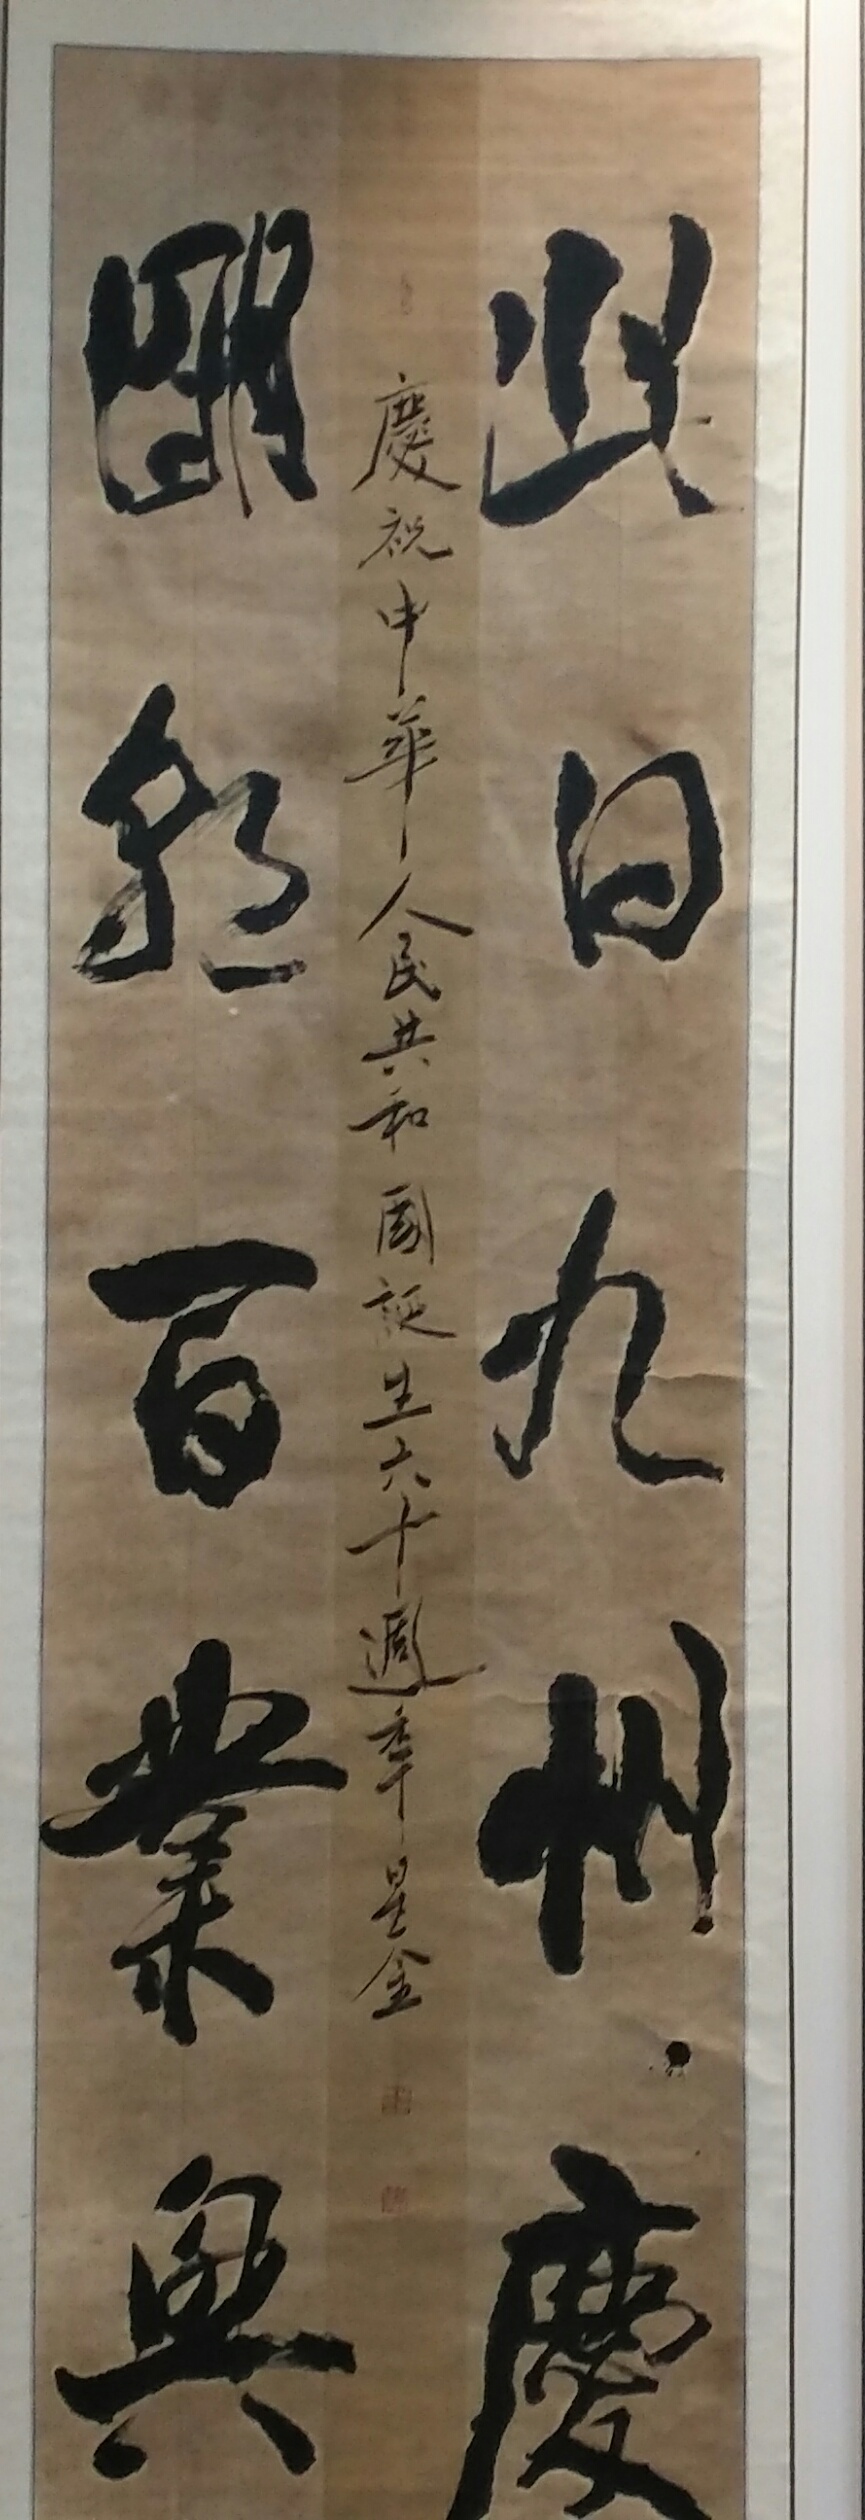 此日九州慶
慶祝中華人民共和國誕生六十週年
明朝百業興